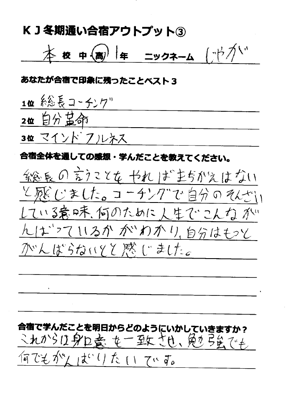 KJ冬期通い合宿アウトプット③
本校 中・高 1年 ニックネーム じゃが
あなたが合宿で印象に残ったことベスト3
1位 総長コーチング
2位 自分革命
3位 マインドフルネス
合宿全体を通しての感想・学んだことを教えてください。
総長の言うことをやれば まちがえはない
と感じました。コーチングで自分のそんざい
している意味、何のために人生でこんなが
んばっているかがわかり、自分はもっと
がんばらないとと感じました。
合宿で学んだことを明日からどのようにいかしていきますか？
これからは身口意を一致させ、勉強でも
何でもがんばりたいです。